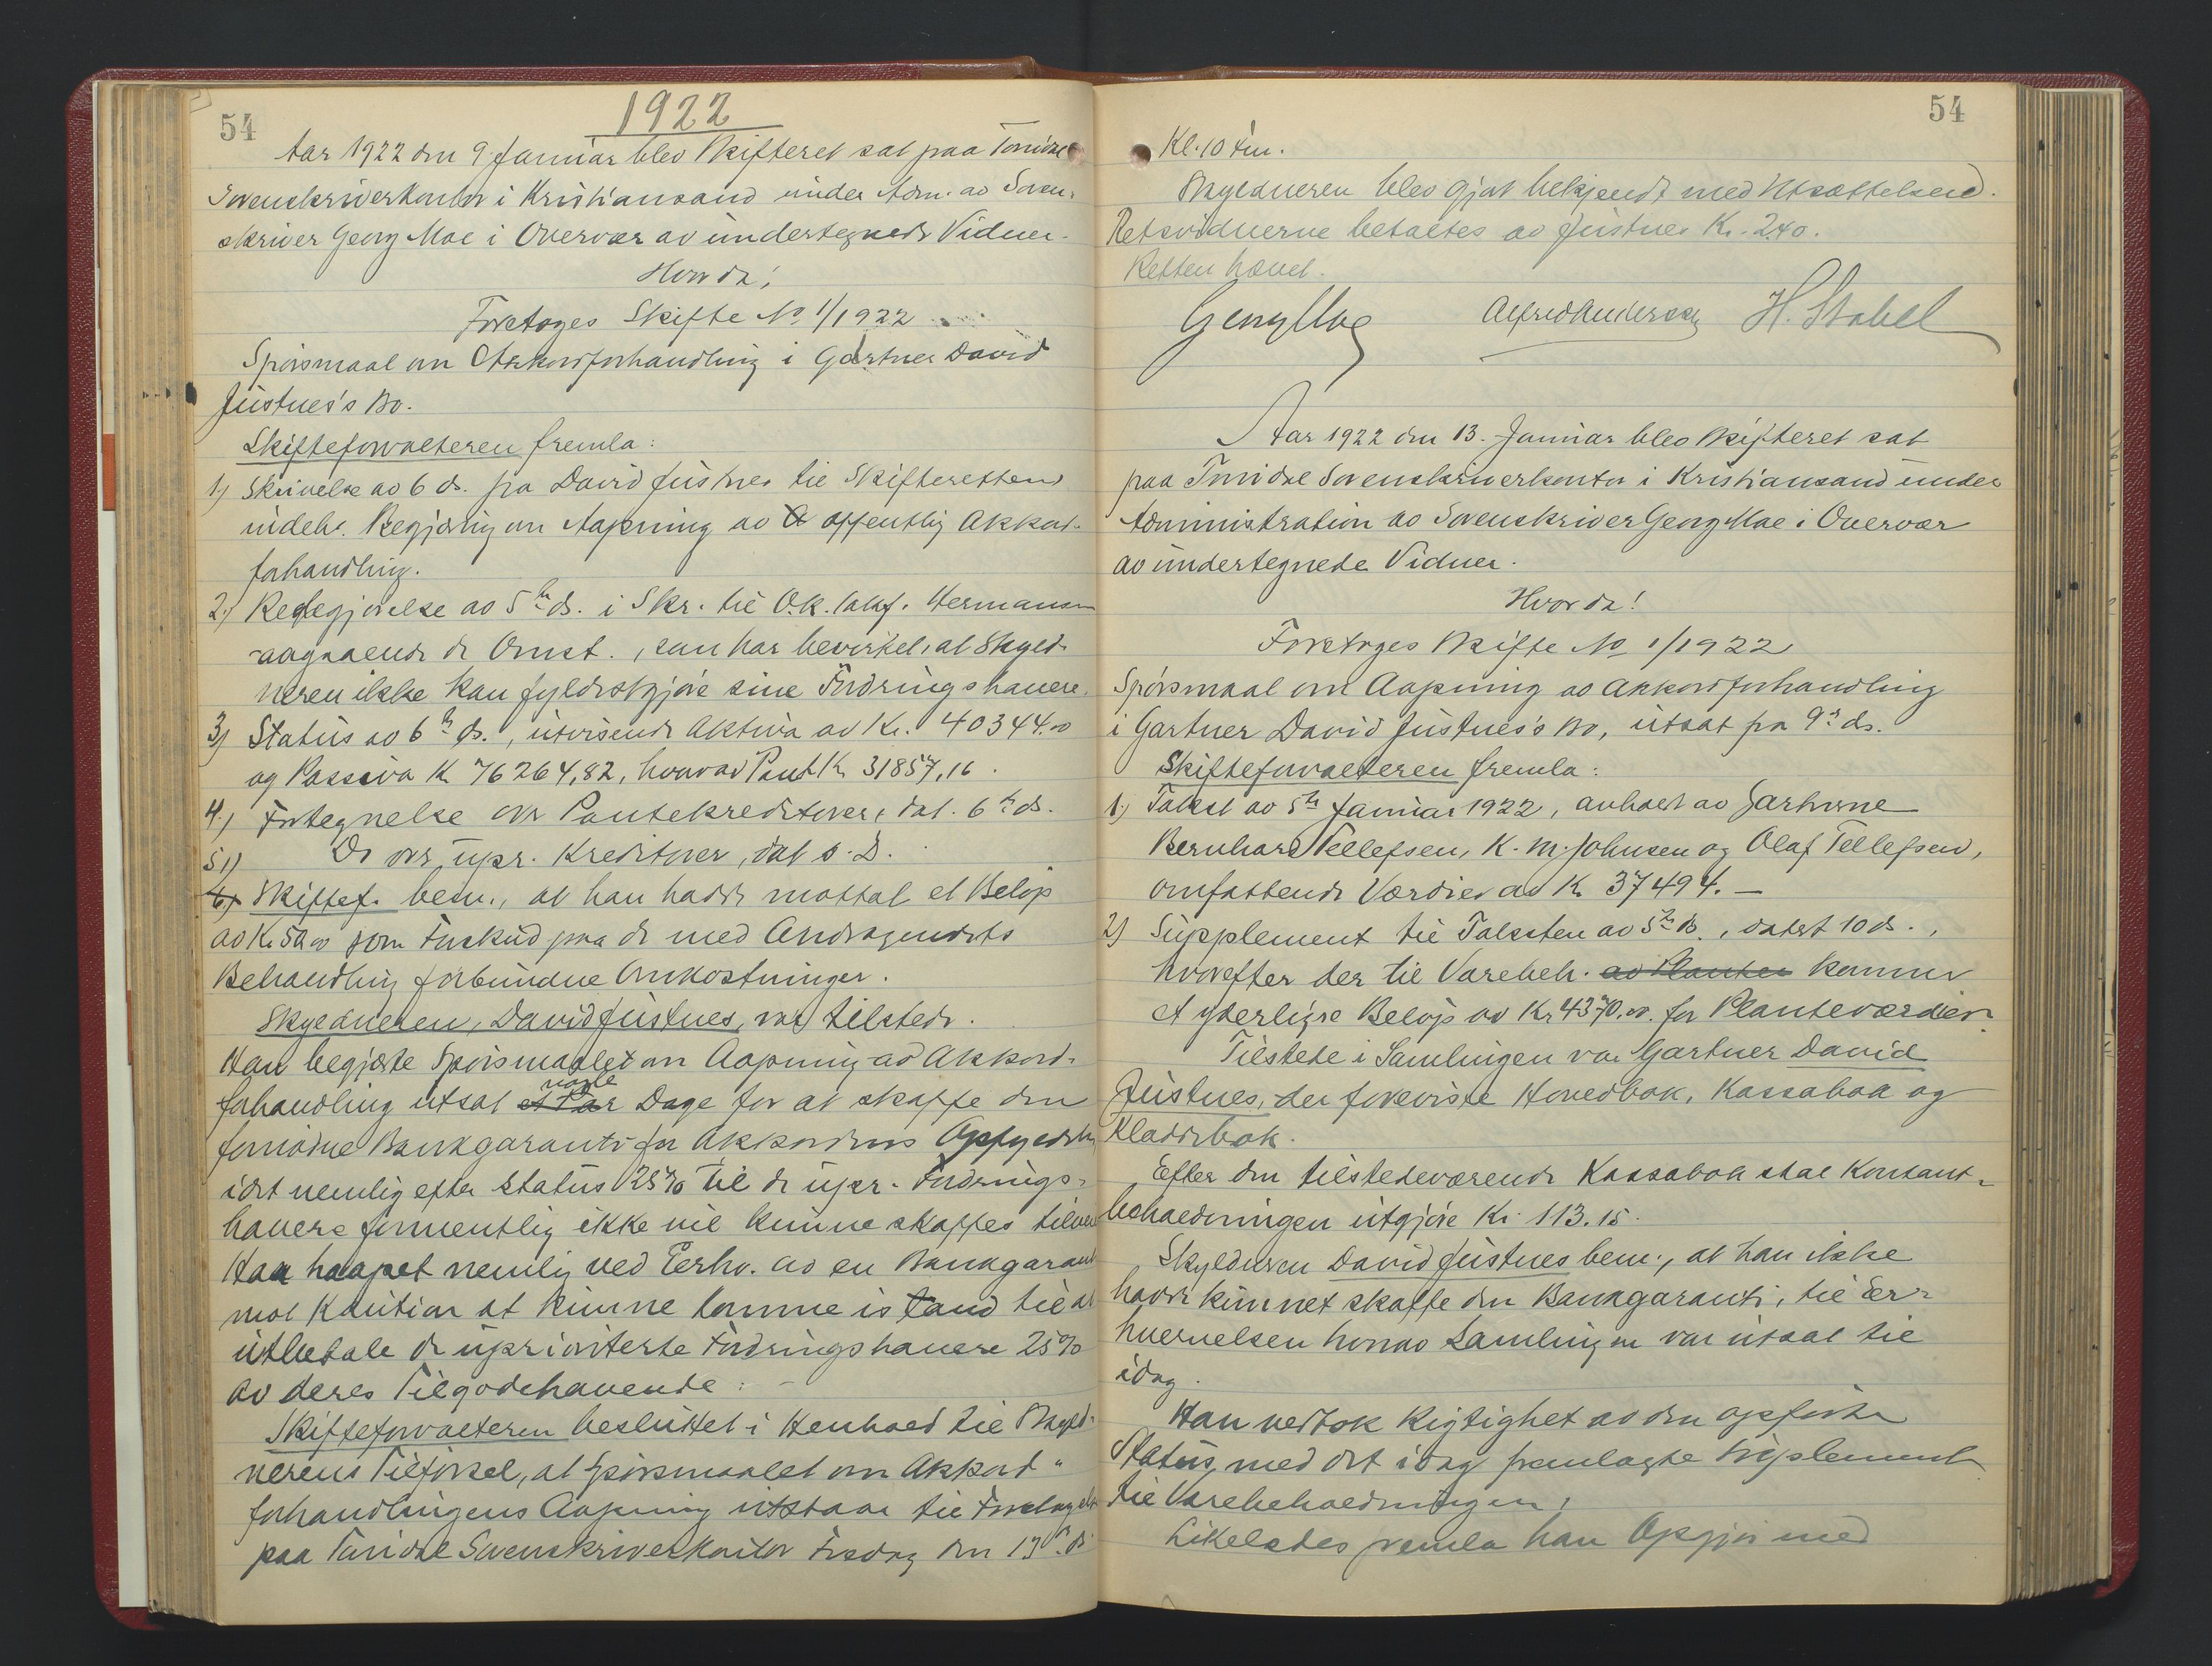 54
1922
Aar 1922 den 9 Januar blev Skifteret sat paa Torridal
Sorenskriverkontor i Kristiansand under Adm. av Soren-
skriver Georg Moe i Overvær av undertegnede Vidner.
Hvorda;
Foretoges Skifte No 1/1922
Spørsmaal om Akkordforhandling i Gartner David
Justnes's Bo.
Skifteforvalteren fremla:
1) Skrivelse av 6 ds. fra David Justnes til Skifteretten
indeh. Begjæring om Aapning av A offentlig Akkord-
forhandling.
2) Redegjørelse av 5te ds. i Skr. til O.R.sakf. Hermansen
angaaende de Omst., som har bevirket, at Skyld-
neren ikke kan fyldestgjøre sine Fordringshavere.
3) Status av 6te ds., utvisende Aktiva av Kr. 40344.00
og Passiva Kr 76264,82, hvorav Pant Kr. 31857,16.
4.) Fortegnelse over Pantekreditorer, dat. 6te ds.
5) Do over upr. Kreditorer, dat s. D.
6) Skiftef. bem., at han hadde mottat et Beløp
av Kr 50.00 som Forskud paa de med Andragendets
Behandling forbundne Omkostninger.
Skyldneren, David Justnes, var tilstede.
Han begjærte Spørsmaalet om Aapning av Akkord-
forhandling utsat et Par nogle Dage for at skaffe den
fornødne Bankgaranti for Akkordens Opfyldelse,
idet nemlig efter Status 25% til de upr. Fordrings-
havere formentlig ikke vil kunne skaffes tilveie
Han haapet nemlig ved Erhv. av en Bankgaranti
mot Kaution at kunne komme istand til at
utbetale de uprioriterte Fordringshavere 25%
av deres Tilgodehavende:-
Skifteforvalteren besluttet i Henhold til Skyld-
nerens Tilførsel, at Spørsmaalet om Akkord-
forhandlingens Aapning utstaar til Foretagelse
paa Torridal Sorenskriverkontor Fredag den 13de ds
54
Kl. 10 Fm.
Skyldneren blev gjort bekjendt med Utsættelsen.
Retsvidnerne betaltes av Justnes Kr. 2.40.
Retten hævet.
Georg Moe Alfred Anderssen H. Stabel
Aar 1922 den 13. Januar blev Skifteret sat
paa Torridal Sorenskriverkontor i Kristiansand under
Administration av Sorenskriver Georg Moe i Overvær
av undertegnede Vidner.
Hvorda!
Foretoges Skifte No 1/1922
Spørsmaal om Aapning av Akkordforhandling
i Gartner David Justnes's Bo, utsat fra 9de ds.
Skifteforvalteren fremla:
1) Takst av 5te Januar 1922, avholdt av Gartnerne
Bernhard Tellefsen, K. M. Johnsen og Olaf Tellefsen,
omfattende Værdier av Kr 37494.—
2) Supplement til Taksten av 5te ds., datert 10 ds.,
hvorefter der til Varebeh. av Planter kommer
et yderligre Beløp av Kr 4370.00 for Planteværdier.
Tilstede i Samlingen var Gartner David
Justnes, der foreviste Hovedbok, Kassabok og
Kladdebok.
Efter den tilstedeværende Kassabok skal Kontant-
beholdningen utgjøre Kr. 113.15.
Skyldneren David Justnes bem., at han ikke
hadde kunnet skaffe den Bankgaranti, til Er-
hvervelsen hvorav Samlingen var utsat til
idag.
Han vedtok Rigtighet av den opførte
Status, med det idag fremlagte Supplement
til Varebeholdningen,
Likeledes fremla han Opgjør med